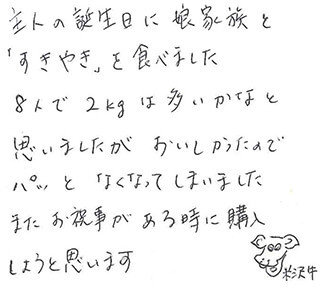 主人の誕生日に娘家族と
「すきやき」を食べました
8人で2kgは多いかなと
思いましたがおいしかったので
パッとなくなってしまいました
またお祝事がある時に購入
しようと思います
米沢牛